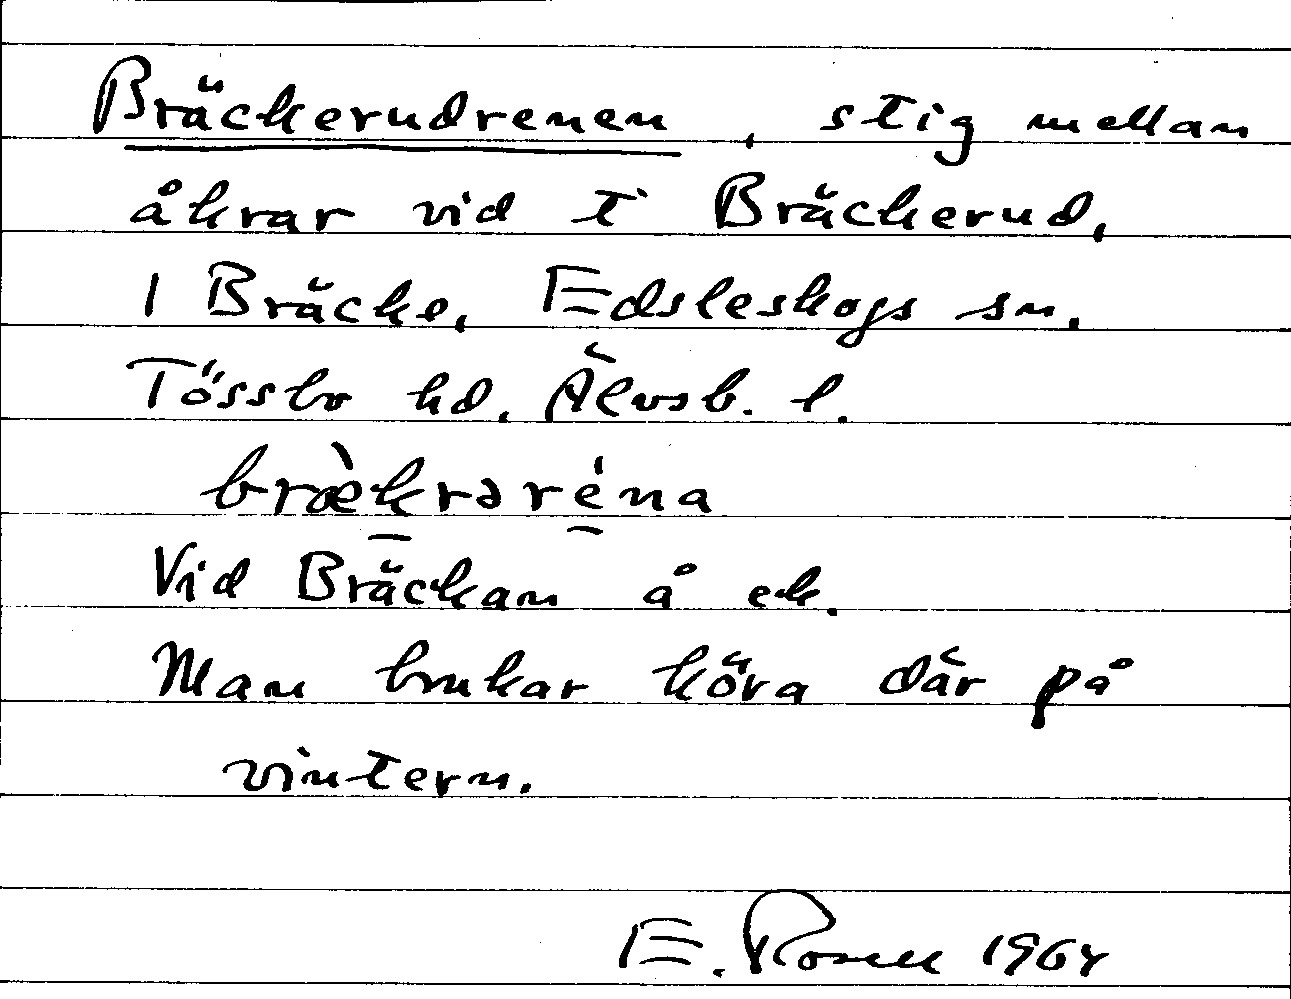 Bräckerudrenen, stig mellan
åkrar vid t Bräckerud,
1 Bräcke, Edsleskogs sn.
Tössbo hd. Älvsb. l.
bræ̀krəréna
Vid Bräckan å ek.
Man brukar köra där på
vintern.
E. Rosell 1964